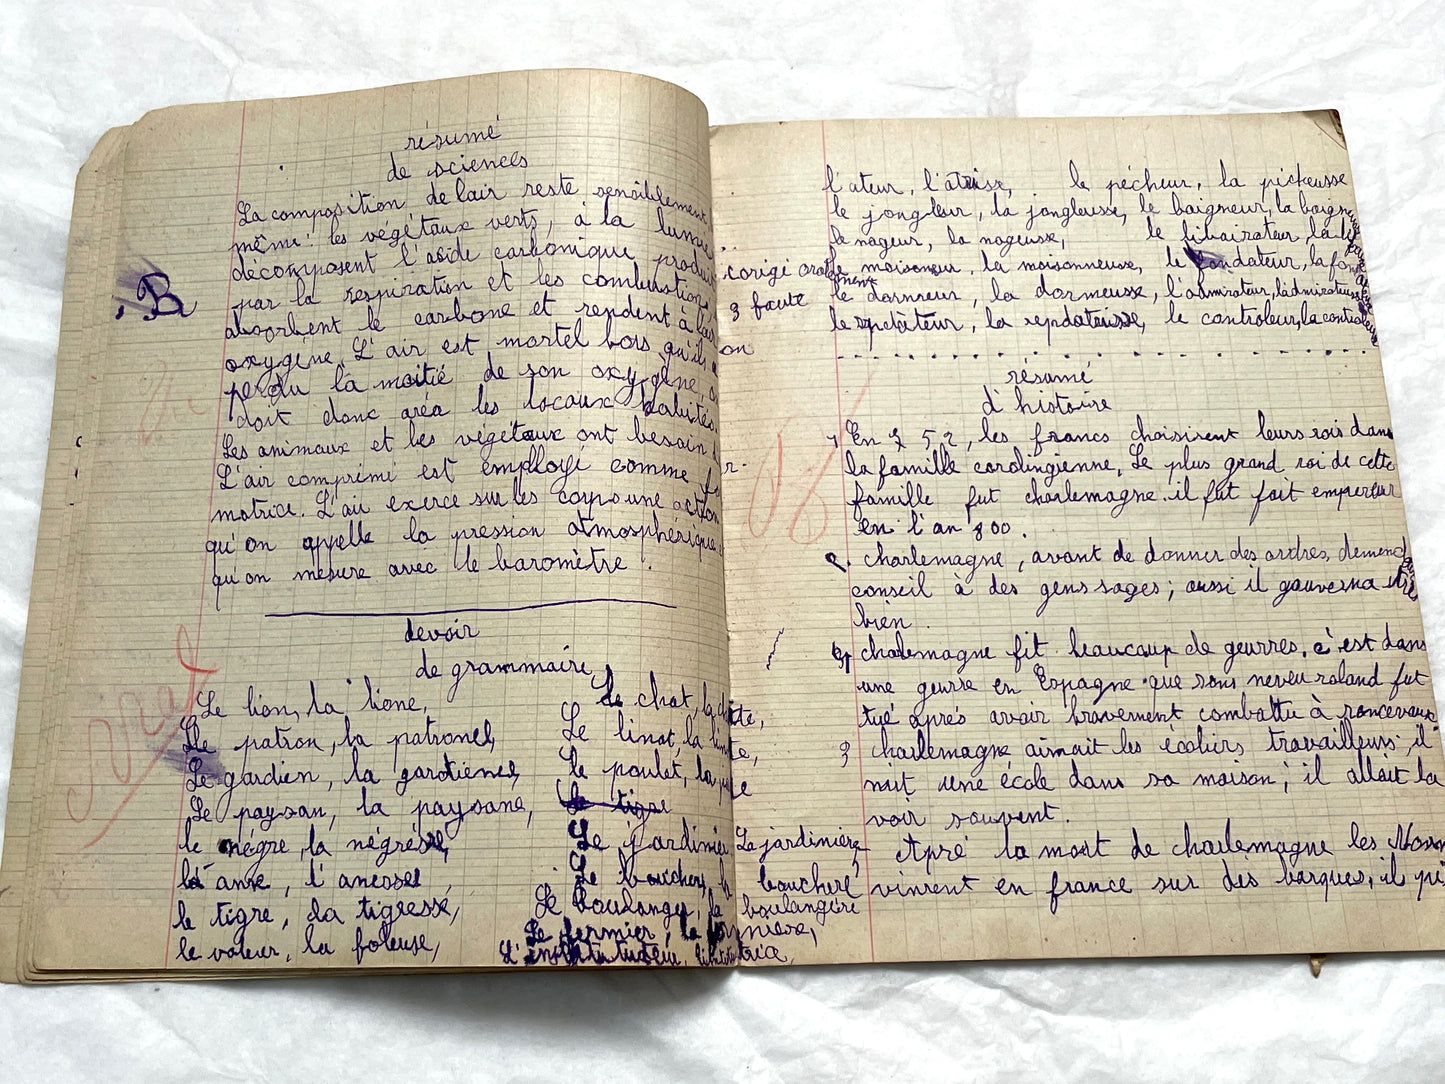 résumé
de sciences
La composition de lair reste sensiblement
même : les végétaux verts, à la lumie
décomposent l'acide carbonique produi
par la respiration et les combustion,
absorbent le carbone et rendent à lair
oxygène. L'air est mortel lors qu'il a
perdu la moitié de son oxygène, on
doit donc aréa les locaux habités.
Les animaux et les végétaux ont besoin
L'air comprimé est employé comme
motrice. L'air exerce sur les corps une action
qu'on appelle la pression atmosphérique
qu'on mesure avec le baromètre.
B
devoir
de grammaire,
Le lion, la lione, Le chat, la chate,
Le patron, la patrone, Le linot, la linote,
Le gardien, la gardiene, le poulet, la
Le paysan, la paysane, Le tigre
le nègre, la négrèsse, Le jardinier La jardinière
l'anse, l'anesse, Le boucher, la boucherè
le tigre, la tigresse, Le boulanger, la boulangère
le voleur, la voleuse, Le fermier, la
L'instituteur,
Vu
l'ateur, l'atrisse, le pécheur, la pickeusse
le jongleur, la jongleusse, le baigneur, la baigneusse
le nageur, la nageusse, le libairateur, la
corigé oralement le moisoneur, la moisonneusse, le fondateur, la
3 faute le dormeur, la dormeusse, l'admirateur, l'admirateusse
le la le controleur, la
résumé
d'histoire
1 En 752, les francs choisirent leurs rois dans
la famille carolingienne, Le plus grand roi de cette
famille fut charlemagne. il fut fait empereur
en l'an 800.
2. charlemagne, avant de donner des ordres, demendait
conseil à des gens sages ; aussi il gouverna très
bien.
charlemagne fit beaucoup de geurres, c'est dans
une geurre en Espagne que sons neveu roland fut
tué aprés avoir bravement combattu à roncevaux
3 charlemagne aimait les écoliers travailleurs ; il
mit une école dans sa maison ; il allait la
voir souvent.
Apré la mort de charlemagne les Norm
vinrent en france sur des barques, il pi